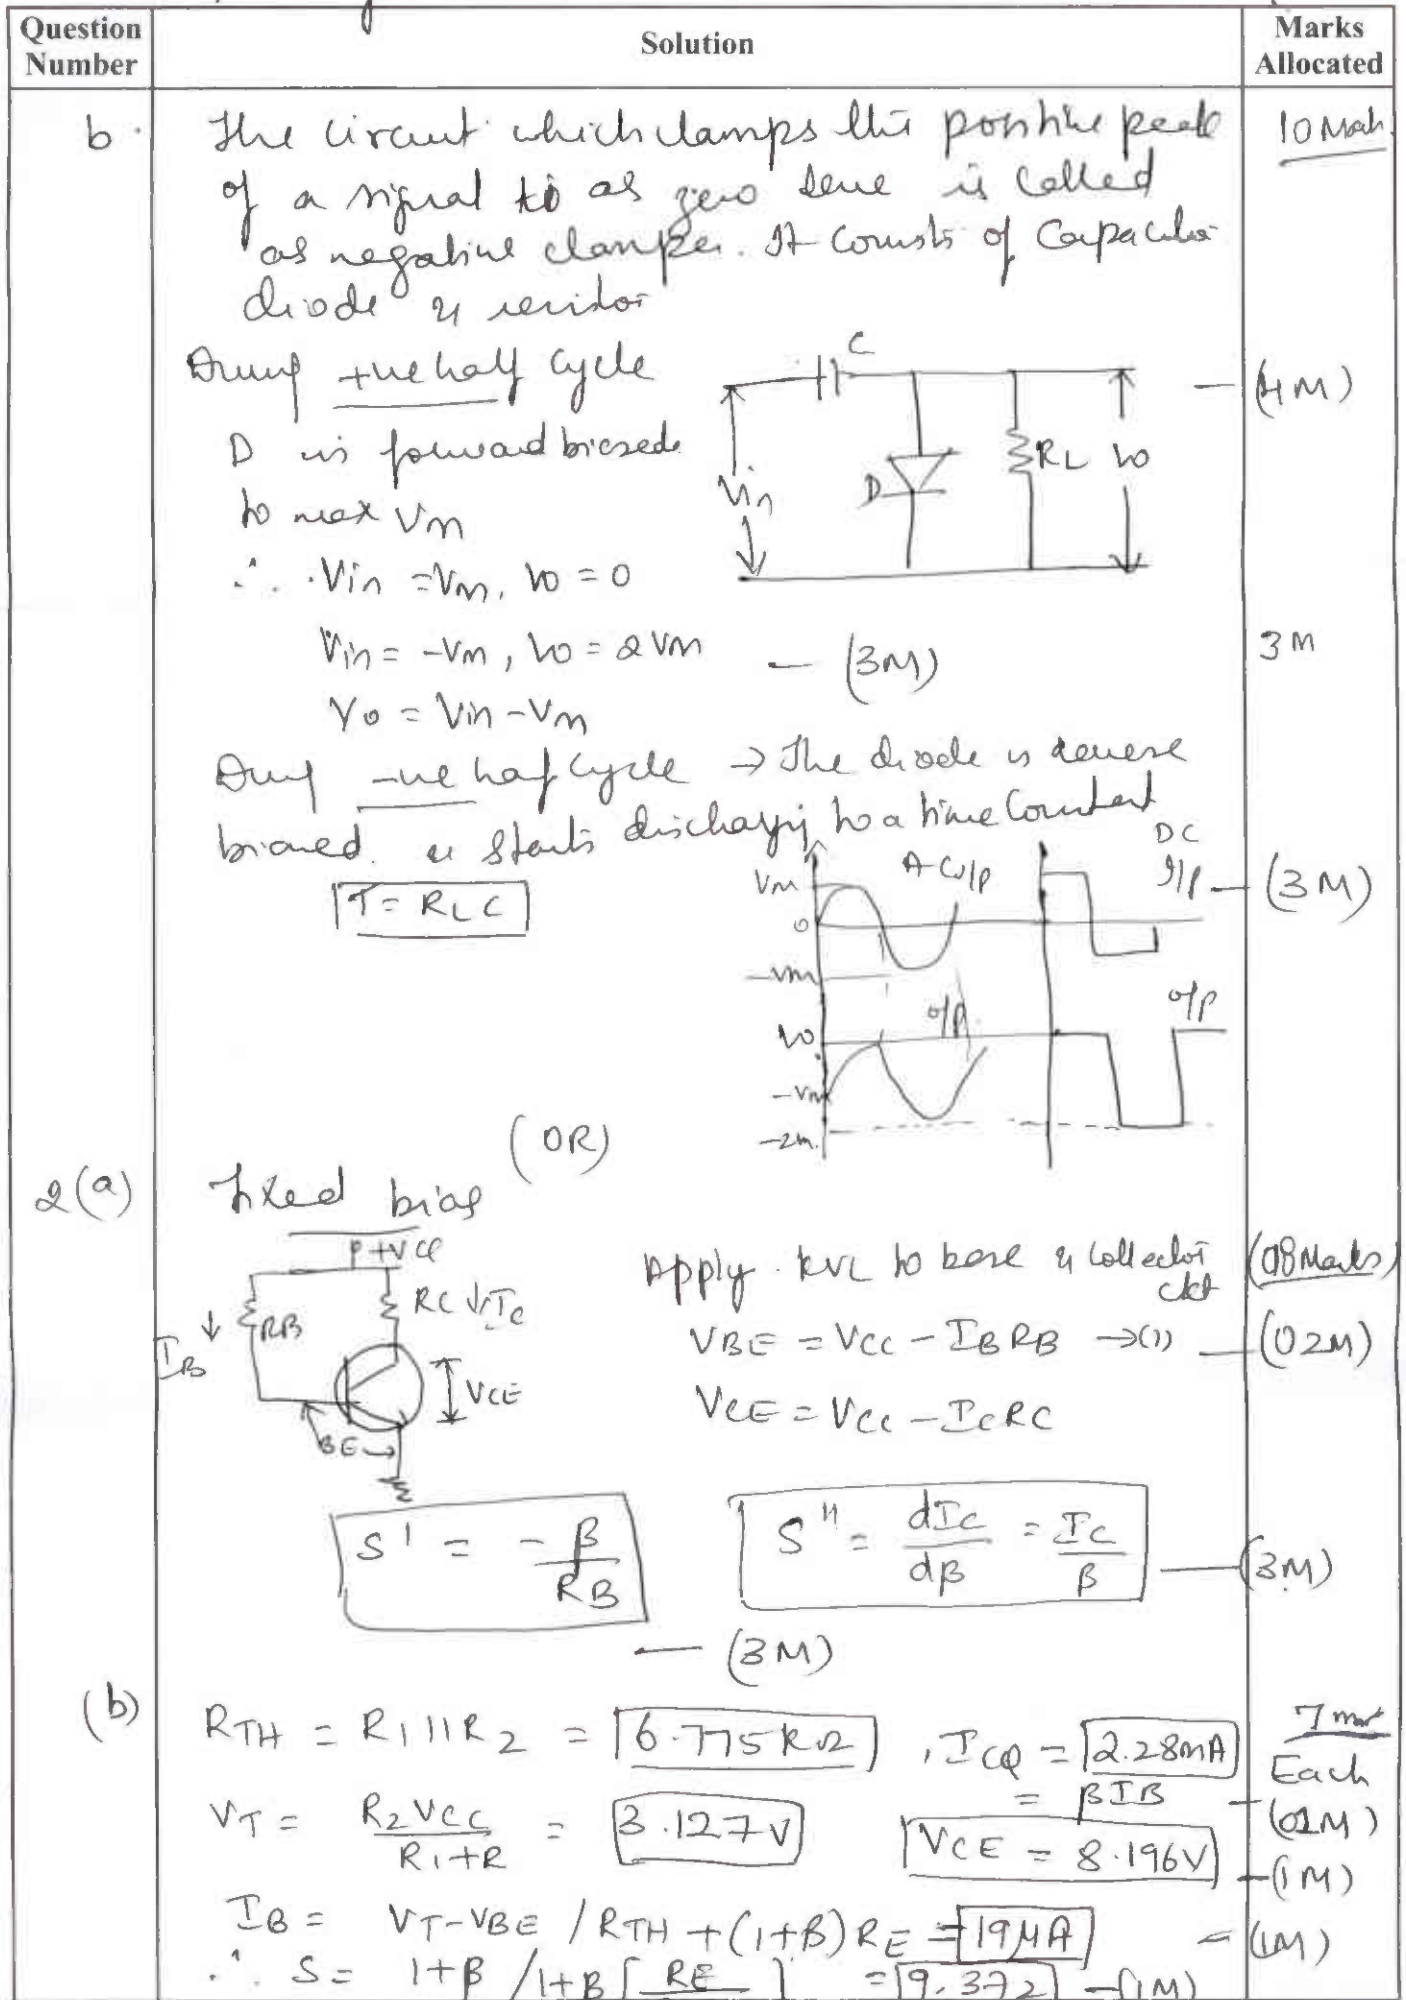 Question Number | Solution | Marks Allocated
b. The circuit which clamps the positive peak 10 Mark
of a signal to as zero is called
as negative clamper. It consists of Capacitor
diode & resistor
During +ve half cycle
C
(4M)
D is forward biased
to max Vm
Vin D RL Vo
∴ Vin = Vm, Vo = 0
Vin = -Vm, Vo = 2Vm — (3M) 3M
Vo = Vin - Vm
During -ve half cycle → The diode is reverse
biased & starts discharging to a time constant
T = RLC
Vm AC i/p DC I/p — (3M)
0
-Vm
Vo o/p o/p
-Vm
-2m.
(OR)
2(a) Fixed bias
+VCC
Apply KVL to base & collector ckt (08 Marks)
IB ↓ RB RC ↓ IC
VBE = VCC - IBRB → (1) — (02M)
VCE
VCE = VCC - ICRC
BE
S' = -β/RB
S'' = dIC/dβ = IC/β — (3M)
— (3M)
(b) RTH = R1||R2 = 6.775KΩ, ICQ = 2.28mA 7
= βIB Each (01M)
VT = R2VCC/R1+R = 3.127V
VCE = 8.196V — (1M)
IB = VT-VBE / RTH+(1+β)RE = 19μA = (1M)
∴ S = 1+β / 1+β [RE ] = 9.372 — (1M)